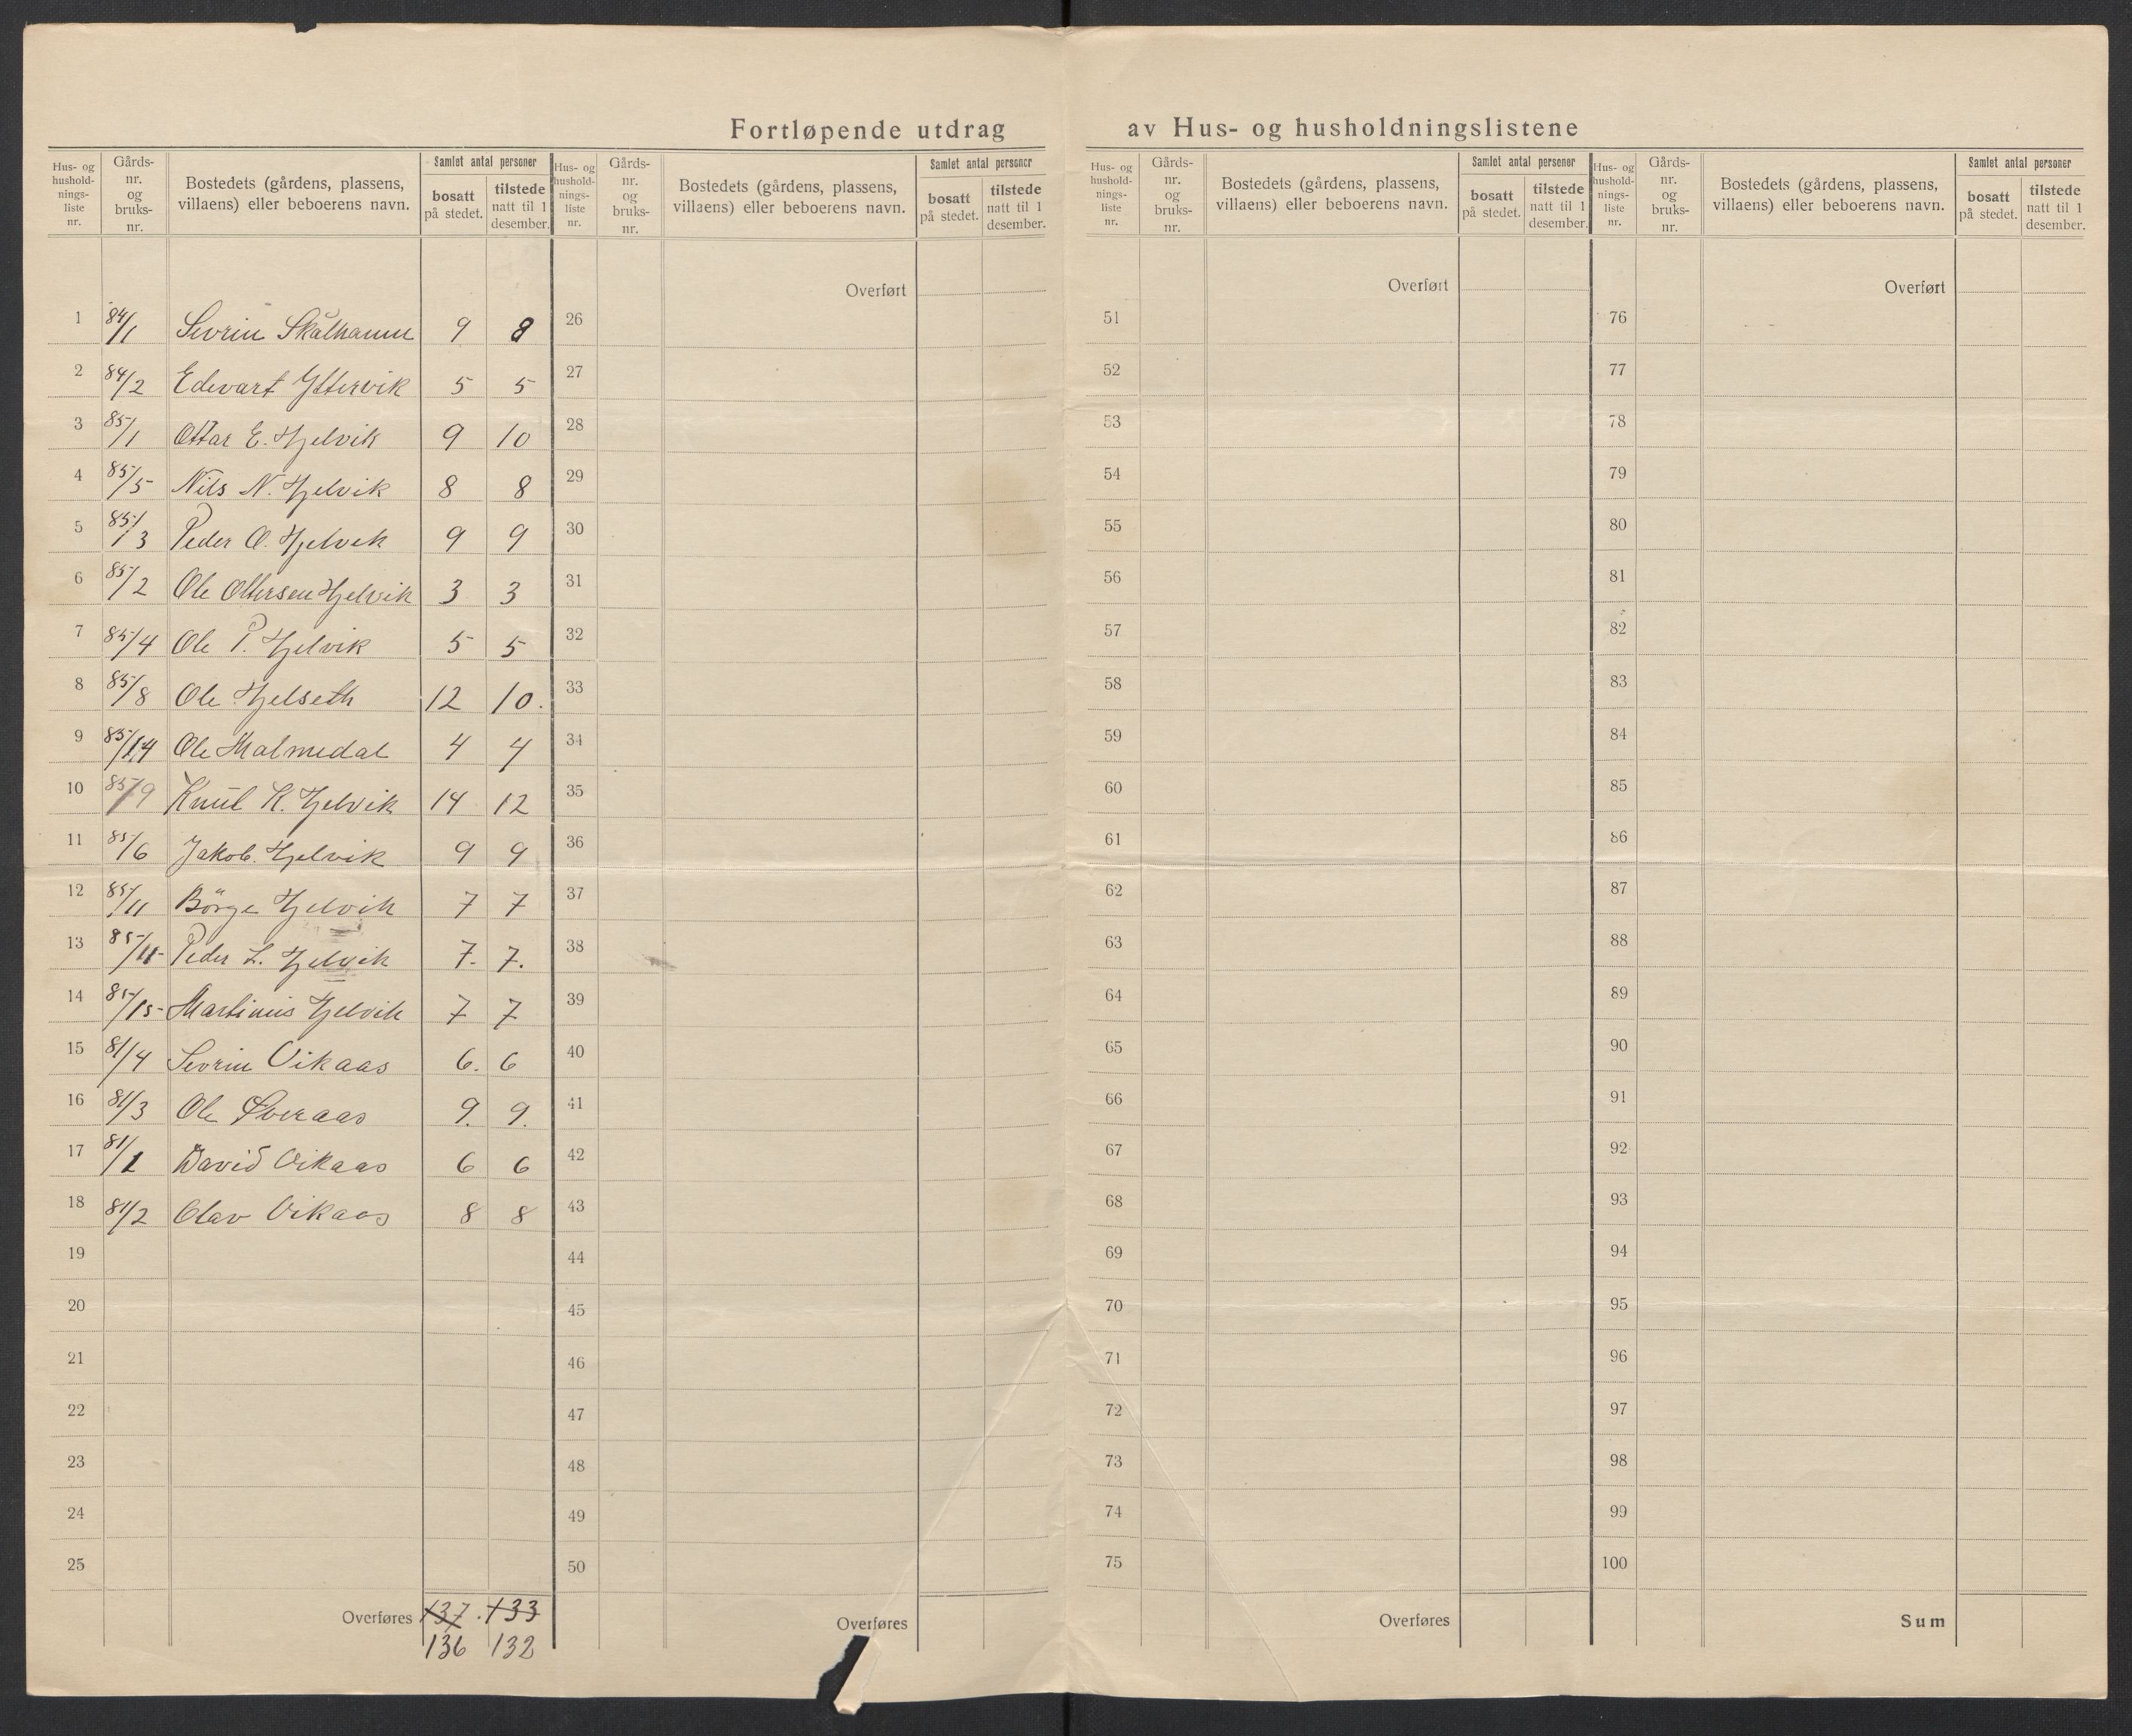 Fortløpende utdrag av Hus- og husholdningslistene
Hus- og hushold-nings-liste nr. | Gårds-nr. og bruks-nr. | Bostedets (gårdens, plassens, villaens) eller beboerens navn. | Samlet antal personer | bosatt på stedet. | tilstede natt til 1 desember.
Hus- og hushold-nings-liste nr. | Gårds-nr. og bruks-nr. | Bostedets (gårdens, plassens, villaens) eller beboerens navn. | Samlet antal personer | bosatt på stedet. | tilstede natt til 1 desember.
Hus- og hushold-nings-liste nr. | Gårds-nr. og bruks-nr. | Bostedets (gårdens, plassens, villaens) eller beboerens navn. | Samlet antal personer | bosatt på stedet. | tilstede natt til 1 desember.
Hus- og hushold-nings-liste nr. | Gårds-nr. og bruks-nr. | Bostedets (gårdens, plassens, villaens) eller beboerens navn. | Samlet antal personer | bosatt på stedet. | tilstede natt til 1 desember.
1 84/1 Sevrin Skålhamn 9 8
2 84/2 Edevart Yttervik 5 5
3 85/1 Ottar E. Hjelvik 9 10
4 85/5 Nils N. Hjelvik 8 8
5 85/3 Peder O. Hjelvik 9 9
6 85/2 Ole Ottersen Hjelvik 3 3
7 85/4 Ole P. Hjelvik 5 5
8 85/8 Ole Hjelseth 12 10.
9 85/14 Ole Malmedal 4 4
10 85/9 Knut K. Hjelvik 14 12
11 85/6 Jakob. Hjelvik 9 9
12 85/11 Börge Hjelvik 7 7
13 85/11 Peder L. Hjelvik 7. 7.
14 85/15 Martinus Hjelvik 7 7
15 81/4 Sevrin Vikaas 6. 6
16 81/3 Ole Øveraas 9. 9.
17 81/1 David Vikaas 6 6
18 81/2 Olav Vikaas 8 8
19
20
21
22
23
24
25
Overføres 137. 133
136 132
Overført
26
27
28
29
30
31
32
33
34
35
36
37
38
39
40
41
42
43
44
45
46
47
48
49
50
Overføres
Overført
51
52
53
54
55
56
57
58
59
60
61
62
63
64
65
66
67
68
69
70
71
72
73
74
75
Overføres
Overført
76
77
78
79
80
81
82
83
84
85
86
87
88
89
90
91
92
93
94
95
96
97
98
99
100
Sum